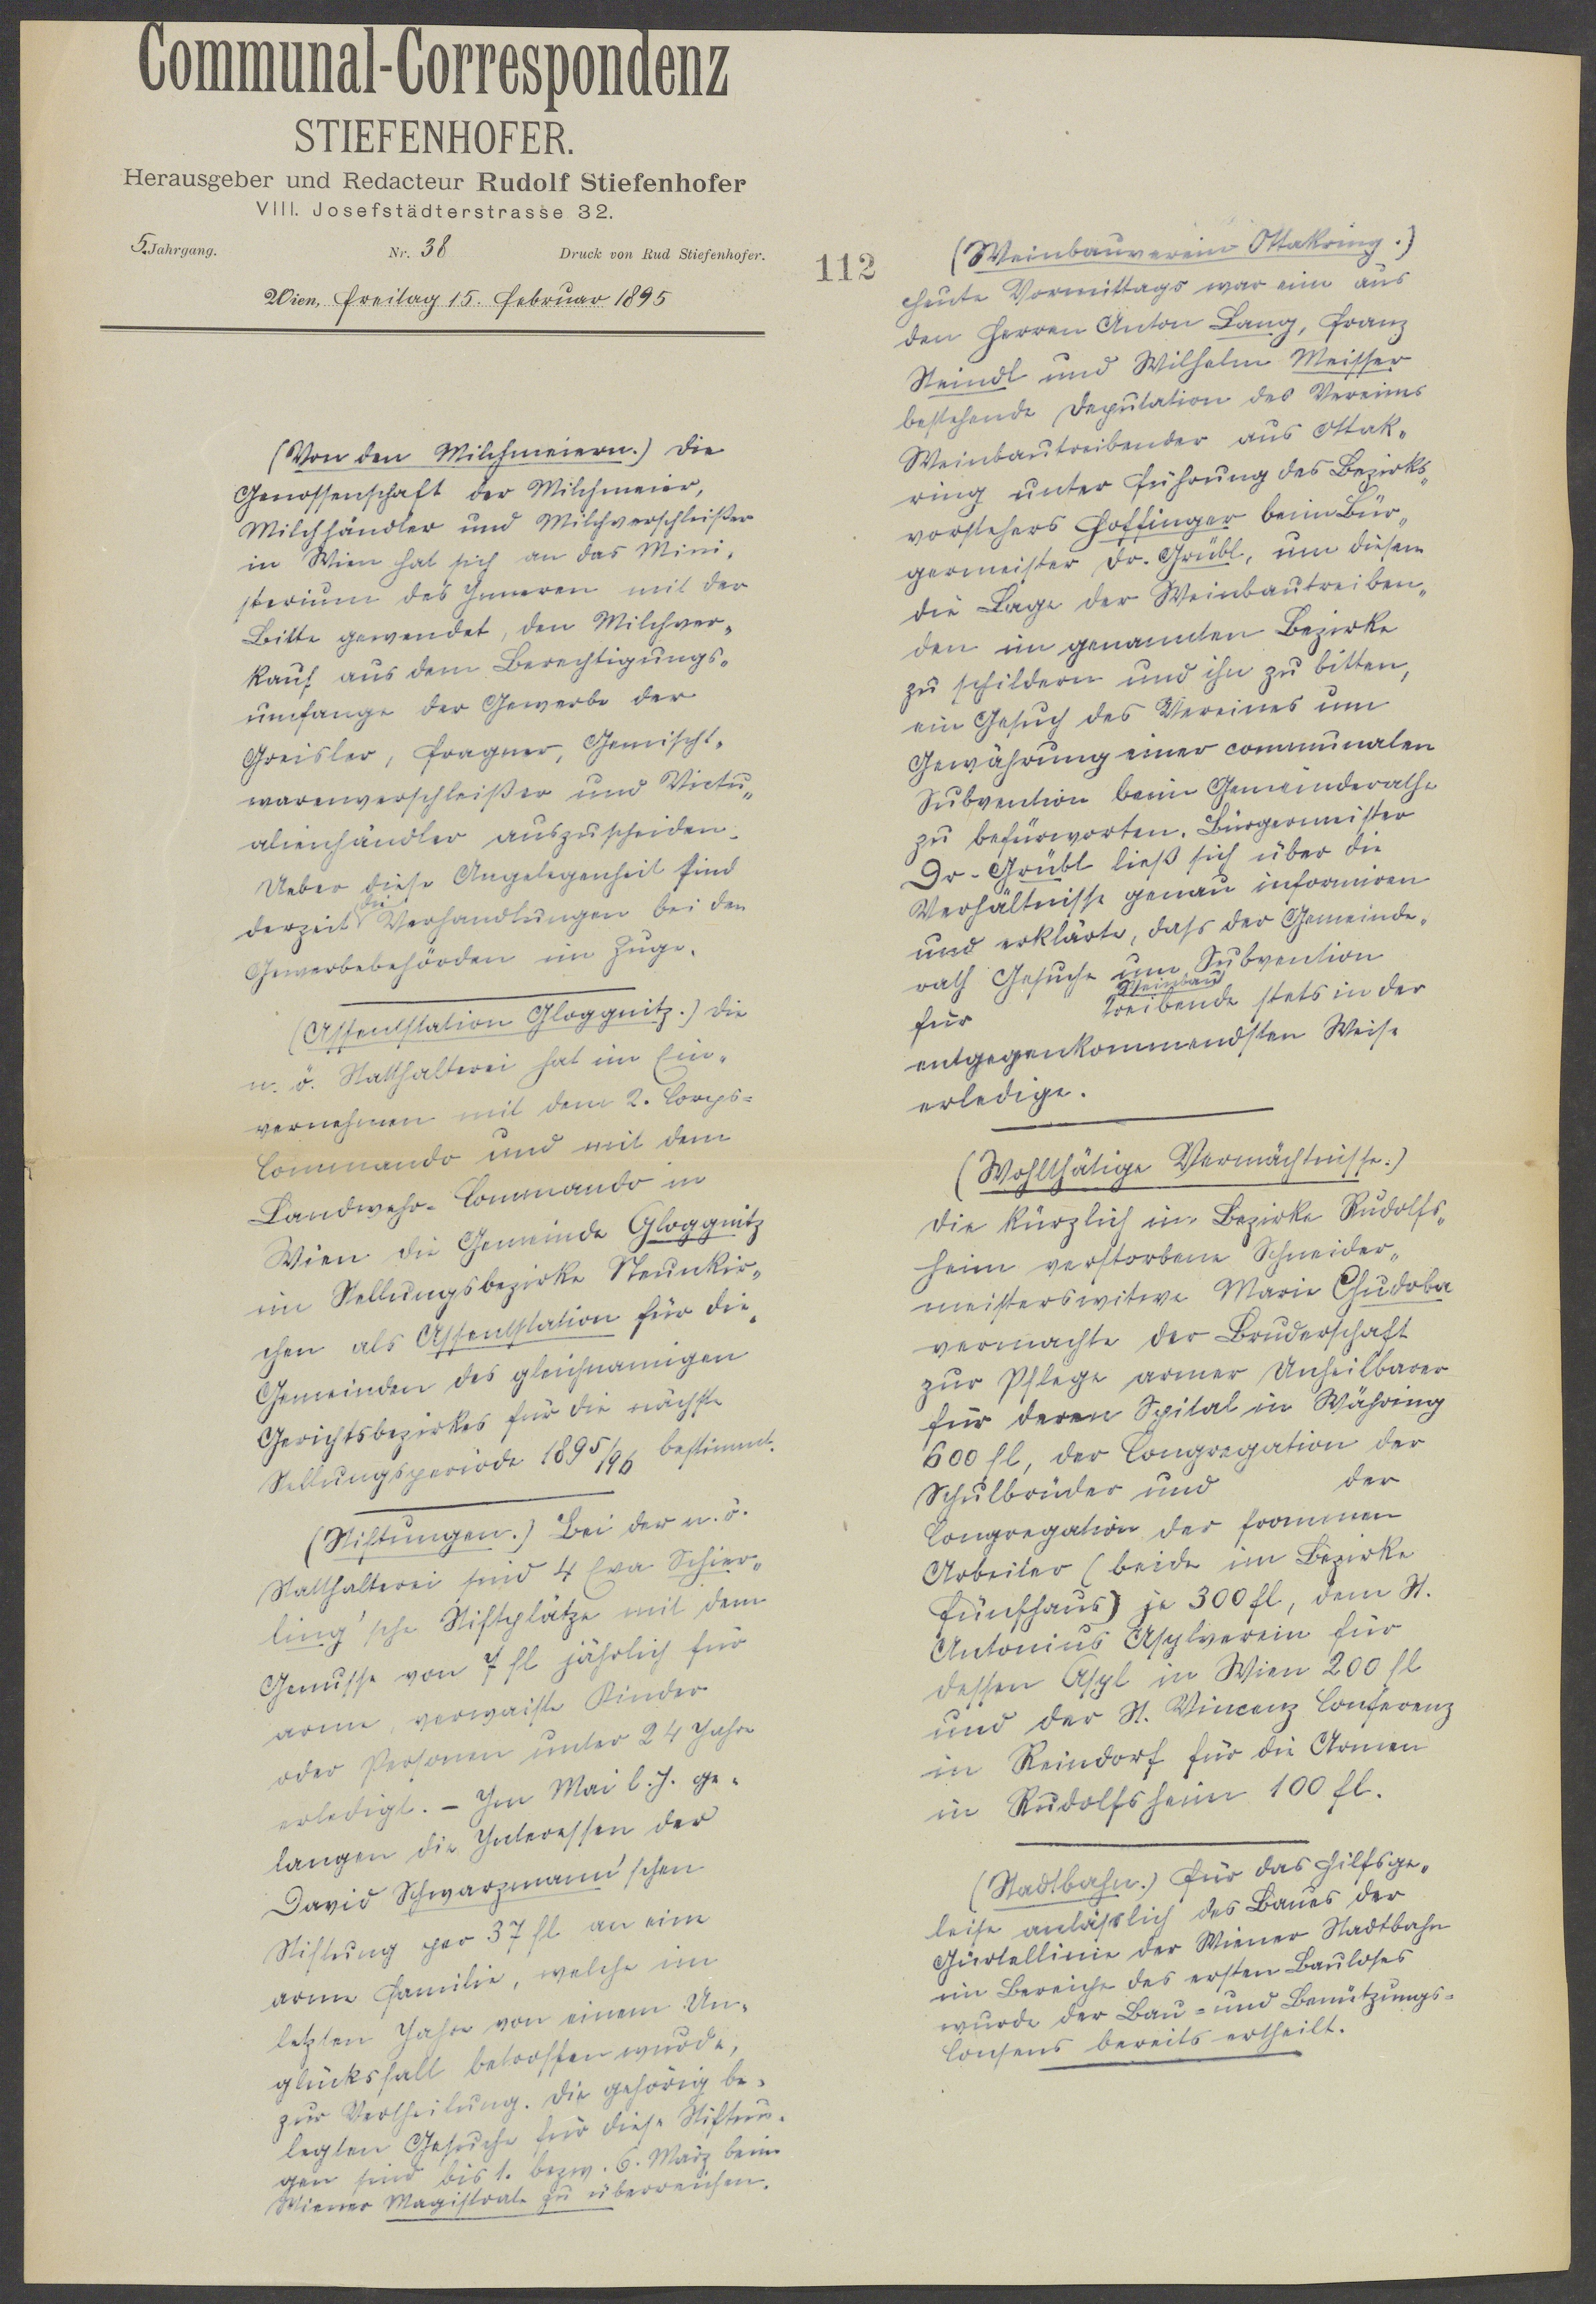 Communal-Correspondenz
STIEFENHOFER.
Herausgeber und Redacteur Rudolf Stiefenhofer
VIII. Josefstädterstrasse 32.
5. Jahrgang. Nr. 38 Druck von Rud Stiefenhofer.
Wien, Freitag 15. Februar 1895
(Von den Milchmeiern.) Die
Genossenschaft der Milchmeier,
Milchhändler und Milchverschleißer
in Wien hat sich an das Mini-
sterium des Inneren mit der
Bitte gewendet, den Milchver-
kauf aus dem Berechtigungs-
umfange der Gewerbe der
Greisler, Fragner, Gemischt-
warenverschleißer und Victu-
alienhändler auszuscheiden.
Ueber diese Angelegenheit sind
derzeit die Verhandlungen bei den
Gewerbebehörden im Zuge.
(Assentstation Gloggnitz.) Die
n. ö. Statthalterei hat im Ein-
vernehmen mit dem 2. Corps-
Commando und mit dem
Landwehr-Commando in
Wien die Gemeinde Gloggnitz
im Stellungsbezirke Neunkir-
chen als Assentstation für die
Gemeinden des gleichnamigen
Gerichtsbezirkes für die nächste
Stellungsperiode 1895/96 bestimmt.
(Stiftungen.) Bei der n. ö.
Statthalterei sind 4 Eva Schier-
ling'sche Stiftplätze mit dem
Genusse von 7 fl jährlich für
arme, verwaiste Kinder
oder Personen unter 24 Jahre
erledigt. – Im Mai l. J. ge-
langen die Interessen der
David Schwarzmann'schen
Stiftung per 37 fl an eine
arme Familie, welche im
letzten Jahre von einem Un-
glücksfall betroffen wurde,
zur Vertheilung. Die gehörig be-
legten Gesuche für diese Stiftun-
gen sind bis 1. bezw. 6. März beim
Wiener Magistrate zu überreichen.
112
(Weinbauverein Ottakring.)
Heute Vormittags war eine aus
den Herren Anton Lang, Franz
Steindl und Wilhelm Meisser
bestehende Deputation des Vereines
Weinbautreibender aus Ottak-
ring unter Führung des Bezirks-
vorstehers Hoffinger beim Bür-
germeister Dr. Grübl, um diesem
die Lage der Weinbautreiben-
den im genannten Bezirke
zu schildern und ihn zu bitten,
ein Gesuch des Vereines um
Gewährung einer communalen
Subvention beim Gemeinderathe
zu befürworten. Bürgermeister
Dr. Grübl ließ sich über die
Verhältnisse genau informiren
und erklärte, dass der Gemeinde-
rath Gesuche um Subvention
für Weinbautreibende stets in der
entgegenkommendsten Weise
erledige.
(Wohlthätige Vermächtnisse.)
Die kürzlich im Bezirke Rudolfs-
heim verstorbene Schneider-
meisterswitwe Marie Chudoba
vermachte der Bruderschaft
zur Pflege armer Unheilbarer
für deren Spital in Währing
600 fl, der Congregation der
Schulbrüder und der
Congregation der frommen
Arbeiter (beide im Bezirke
Fünfhaus) je 300 fl, dem St.
Antonius Asylverein für
dessen Asyl in Wien 200 fl
und der St. Vincenz Conferenz
in Reindorf für die Armen
in Rudolfsheim 100 fl.
(Stadtbahn.) Für das Hilfsge-
leise anlässlich des Baues der
Gürtellinie der Wiener Stadtbahn
im Bereiche des ersten Bauloses
wurde der Bau- und Benützungs-
Consens bereits ertheilt.